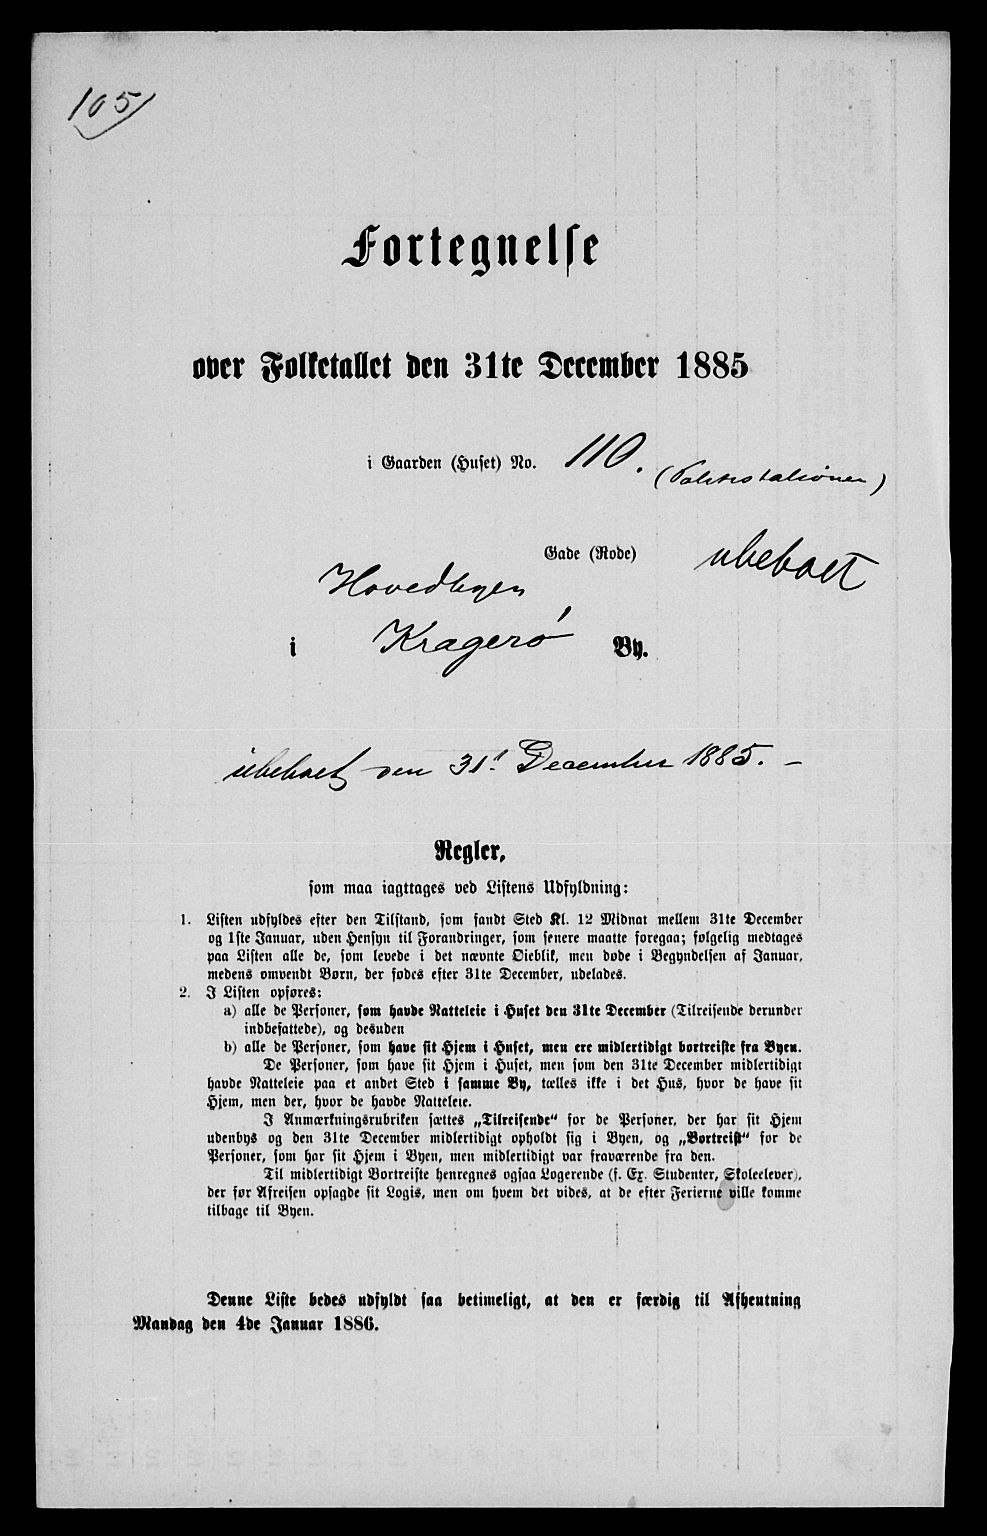 105
Fortegnelse
over Folketallet den 31te December 1885
i Gaarden (Huset) No. 110. (Politistationen)
Gade (Rode) ubeboet
Hovedbyen
i Kragerø By.
ubeboet den 31' December 1885. –
Regler,
som maa iagttages ved Listens Udfyldning:
1. Listen udfyldes efter den Tilstand, som fandt Sted Kl. 12 Midnat mellem 31te December
og 1ste Januar, uden Hensyn til Forandringer, som senere maatte foregaa; følgelig medtages
paa Listen alle de, som levede i det nævnte Øieblik, men døde i Begyndelsen af Januar,
medens omvendt Børn, der fødes efter 31te December, udelades.
2. I Listen opføres:
a) alle de Personer, som havde Natteleie i Huset den 31te December (Tilreisende derunder
indbefattede), og desuden
b) alle de Personer, som have sit Hjem i Huset, men ere midlertidigt bortreiste fra Byen.
De Personer, som have sit Hjem i Huset, men som den 31te December midlertidigt
havde Natteleie paa et andet Sted i samme By, tælles ikke i det Hus, hvor de have sit
Hjem, men der, hvor de havde Natteleie.
I Anmærkningsrubriken sættes „Tilreisende“ for de Personer, der har sit Hjem
udenbys og den 31te December midlertidigt opholdt sig i Byen, og „Bortreist“ for de
Personer, som har sit Hjem i Byen, men midlertidigt var fraværende fra den.
Til midlertidigt Bortreiste henregnes ogsaa Logerende (f. Ex. Studenter, Skoleelever),
der før Afreisen opsagde sit Logis, men om hvem det vides, at de efter Ferierne ville komme
tilbage til Byen.
Denne Liste bedes udfyldt saa betimeligt, at den er færdig til Afhentning
Mandag den 4de Januar 1886.